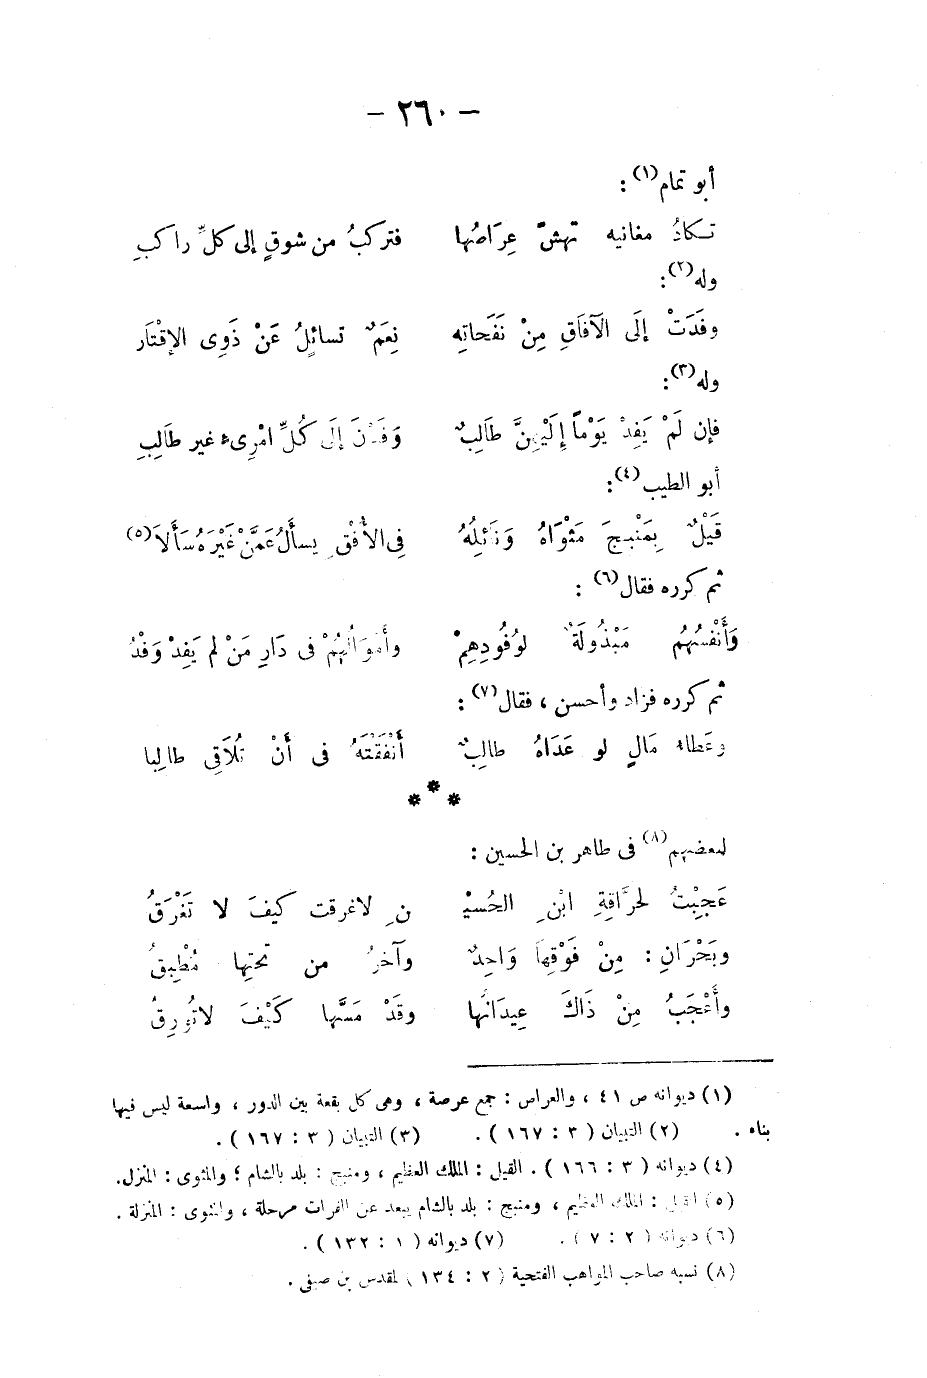 – ٢٦٠ –
أبو تمام(١) :
تكادُ مغانيه تهشّ عِرَاصُها فتركبُ من شوقٍ إلى كلِّ راكبِ
وله(٢) :
وفَدَتْ إلَى الآفَاقِ مِنْ نَفَحَاتِه نِعَمٌ تسائِلُ عَنْ ذَوِى الإقْتَارِ
وله(٣) :
فإن لَمْ يَفِدْ يَوْماً إِلَيْهِنَّ طَالِبٌ وَفَدْنَ إلَى كُلِّ امْرِىء غير طَالِبِ
أبو الطيب(٤) :
قَيْلٌ بِمَنْبِجَ مَثْوَاهُ وَنَائِلُهُ فِى الأُفْقِ يسأَلُ عَمَّنْ غَيْرَهُ سَأَلاَ(٥)
ثم كرره فقال(٦) :
وَأَنْفُسُهُم مَبْذُولَةٌ لوُفُودِهِمْ وأَموَالُهُمْ فى دَارِ مَنْ لم يَفِدْ وَفْدُ
ثم كرره فزاد وأحسن ، فقال(٧) :
وعَطاء مَالٍ لو عَدَاهُ طالِبٌ أَنْفَقْتَهُ فى أَنْ تُلاَقِى طالِبا
* * *
لبعضهم(٨) فى طاهر بن الحسين :
عَجِبْتُ لحرَّاقةِ ابْنِ الحُسيْ نِ لاغرقت كيفَ لا تَغْرَقُ
وبَحْرَانِ : مِنْ فَوْقِهَا وَاحِدٌ وآخرُ من تحتِها مُطْبِقُ
وأَعْجَبُ مِنْ ذَاكَ عِيدَانُها وقَدْ مَسَّها كَيْفَ لاتُورِقُ
(١) ديوانه ص ٤١ ، والعراص : جمع عرصة ، وهى كل بقعة بين الدور ، واسعة ليس فيها
بناء . (٢) التبيان ( ٣ : ١٦٧ ) . (٣) التبيان ( ٣ : ١٦٧ ) .
(٤) ديوانه ( ٣ : ١٦٦ ) . القيل : الملك العظيم ، ومنبج : بلد بالشام ؛ والمثوى : المنزل.
(٥) القيل : الملك العظيم ، ومنبج : بلد بالشام يبعد عن الفرات مرحلة ، والمثوى : المنزلة .
(٦) ديوانه ( ٢ : ٧ ) . (٧) ديوانه ( ١ : ١٣٢ ) .
(٨) نسبه صاحب المواهب الفتحية ( ٢ : ١٣٤ ) لمقدس بن صيفى .